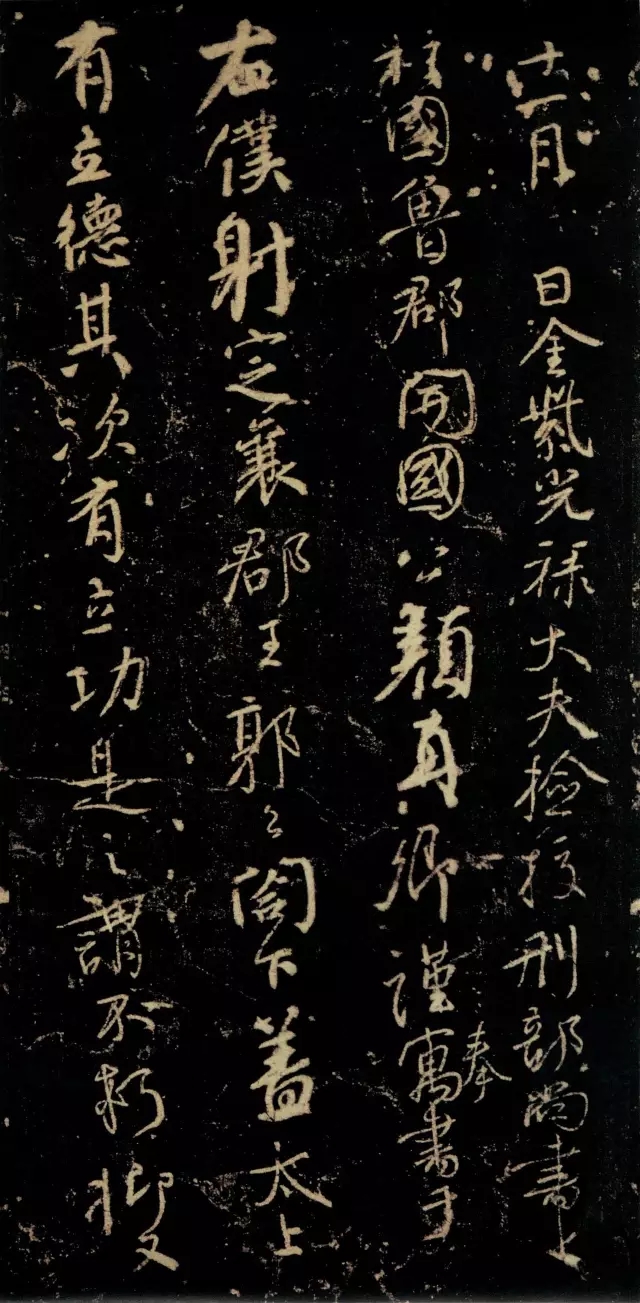 十一月 日金紫光祿大夫檢校刑部尚書上
柱國魯郡開國公顏真卿謹奉寓書于
右僕射定襄郡王郭公閤下盖太上
有立德其次有立功是之謂不朽抑又